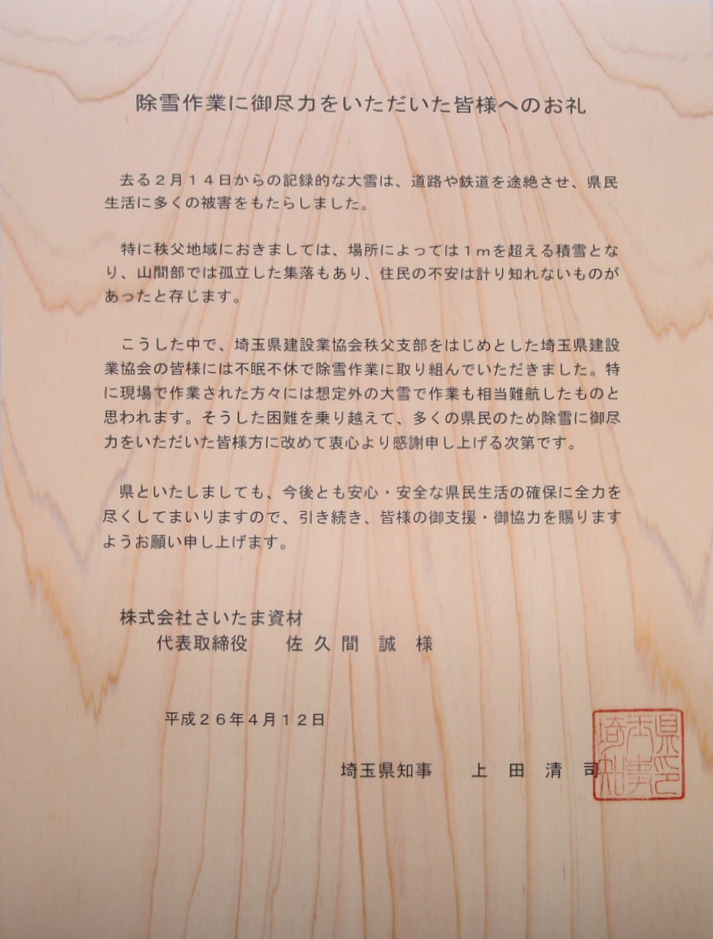 除雪作業に御尽力をいただいた皆様へのお礼
去る２月１４日からの記録的な大雪は、道路や鉄道を途絶させ、県民
生活に多くの被害をもたらしました。
特に秩父地域におきましては、場所によっては１ｍを超える積雪とな
り、山間部では孤立した集落もあり、住民の不安は計り知れないものが
あったと存じます。
こうした中で、埼玉県建設業協会秩父支部をはじめとした埼玉県建設
業協会の皆様には不眠不休で除雪作業に取り組んでいただきました。特
に現場で作業された方々には想定外の大雪で作業も相当難航したものと
思われます。そうした困難を乗り越えて、多くの県民のため除雪に御尽
力をいただいた皆様方に改めて衷心より感謝申し上げる次第です。
県といたしましても、今後とも安心・安全な県民生活の確保に全力を
尽くしてまいりますので、引き続き、皆様の御支援・御協力を賜ります
ようお願い申し上げます。
株式会社さいたま資材
代表取締役　　佐 久 間　誠　様
平成２６年４月１２日
埼玉県知事　　上　田　清　司
埼玉県知事印